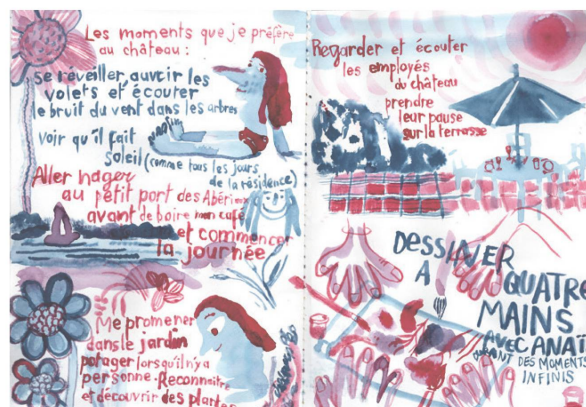 Les moments que je préfère
au château :
se réveiller, ouvrir les
volets et écouter
le bruit du vent dans les arbres
voir qu'il fait
soleil (comme tous les jours
de la résidence)
Aller nager
au petit port des Abériens
avant de boire mon café
et commencer
la journée
Me promener
dans le jardin
potager lorsqu'il n'y a
personne. Reconnaître
et découvrir des plantes
Regarder et écouter
les employés
du château
prendre
leur pause
sur la terrasse
DESSINER
A QUATRE
MAINS
AVEC ANAÏ
DURANT DES MOMENTS
INFINIS